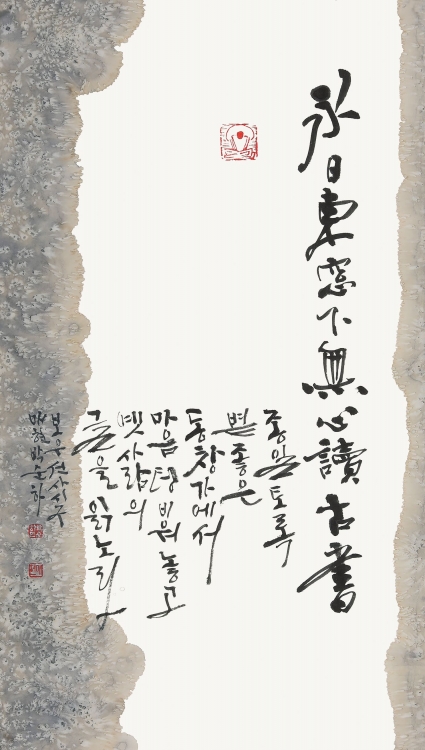 永日東窓下無心讀古書
종일토록
볕 좋은
동창가에서
마음 텅 비워 놓고
옛 사람의
글을 읽노라
보우선사 시구